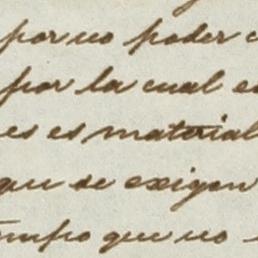 por no poder
por la cual e
es es material
que se exigen
empo que no